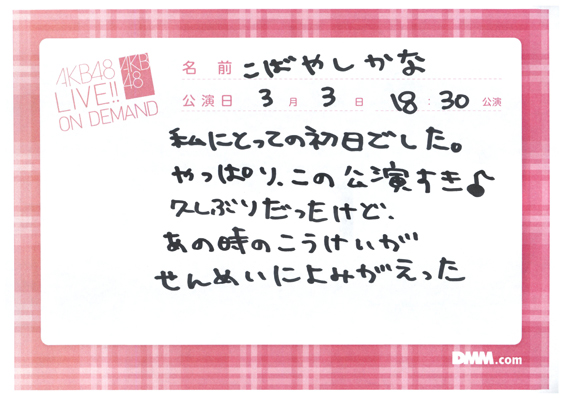 AKB48
LIVE!!
ON DEMAND
AKB
48
名前 こばやしかな
公演日 3月3日 18:30公演
私にとっての初日でした。
やっぱり、この公演すき♪
久しぶりだったけど、
あの時のこうけいが
せんめいによみがえった
DMM.com